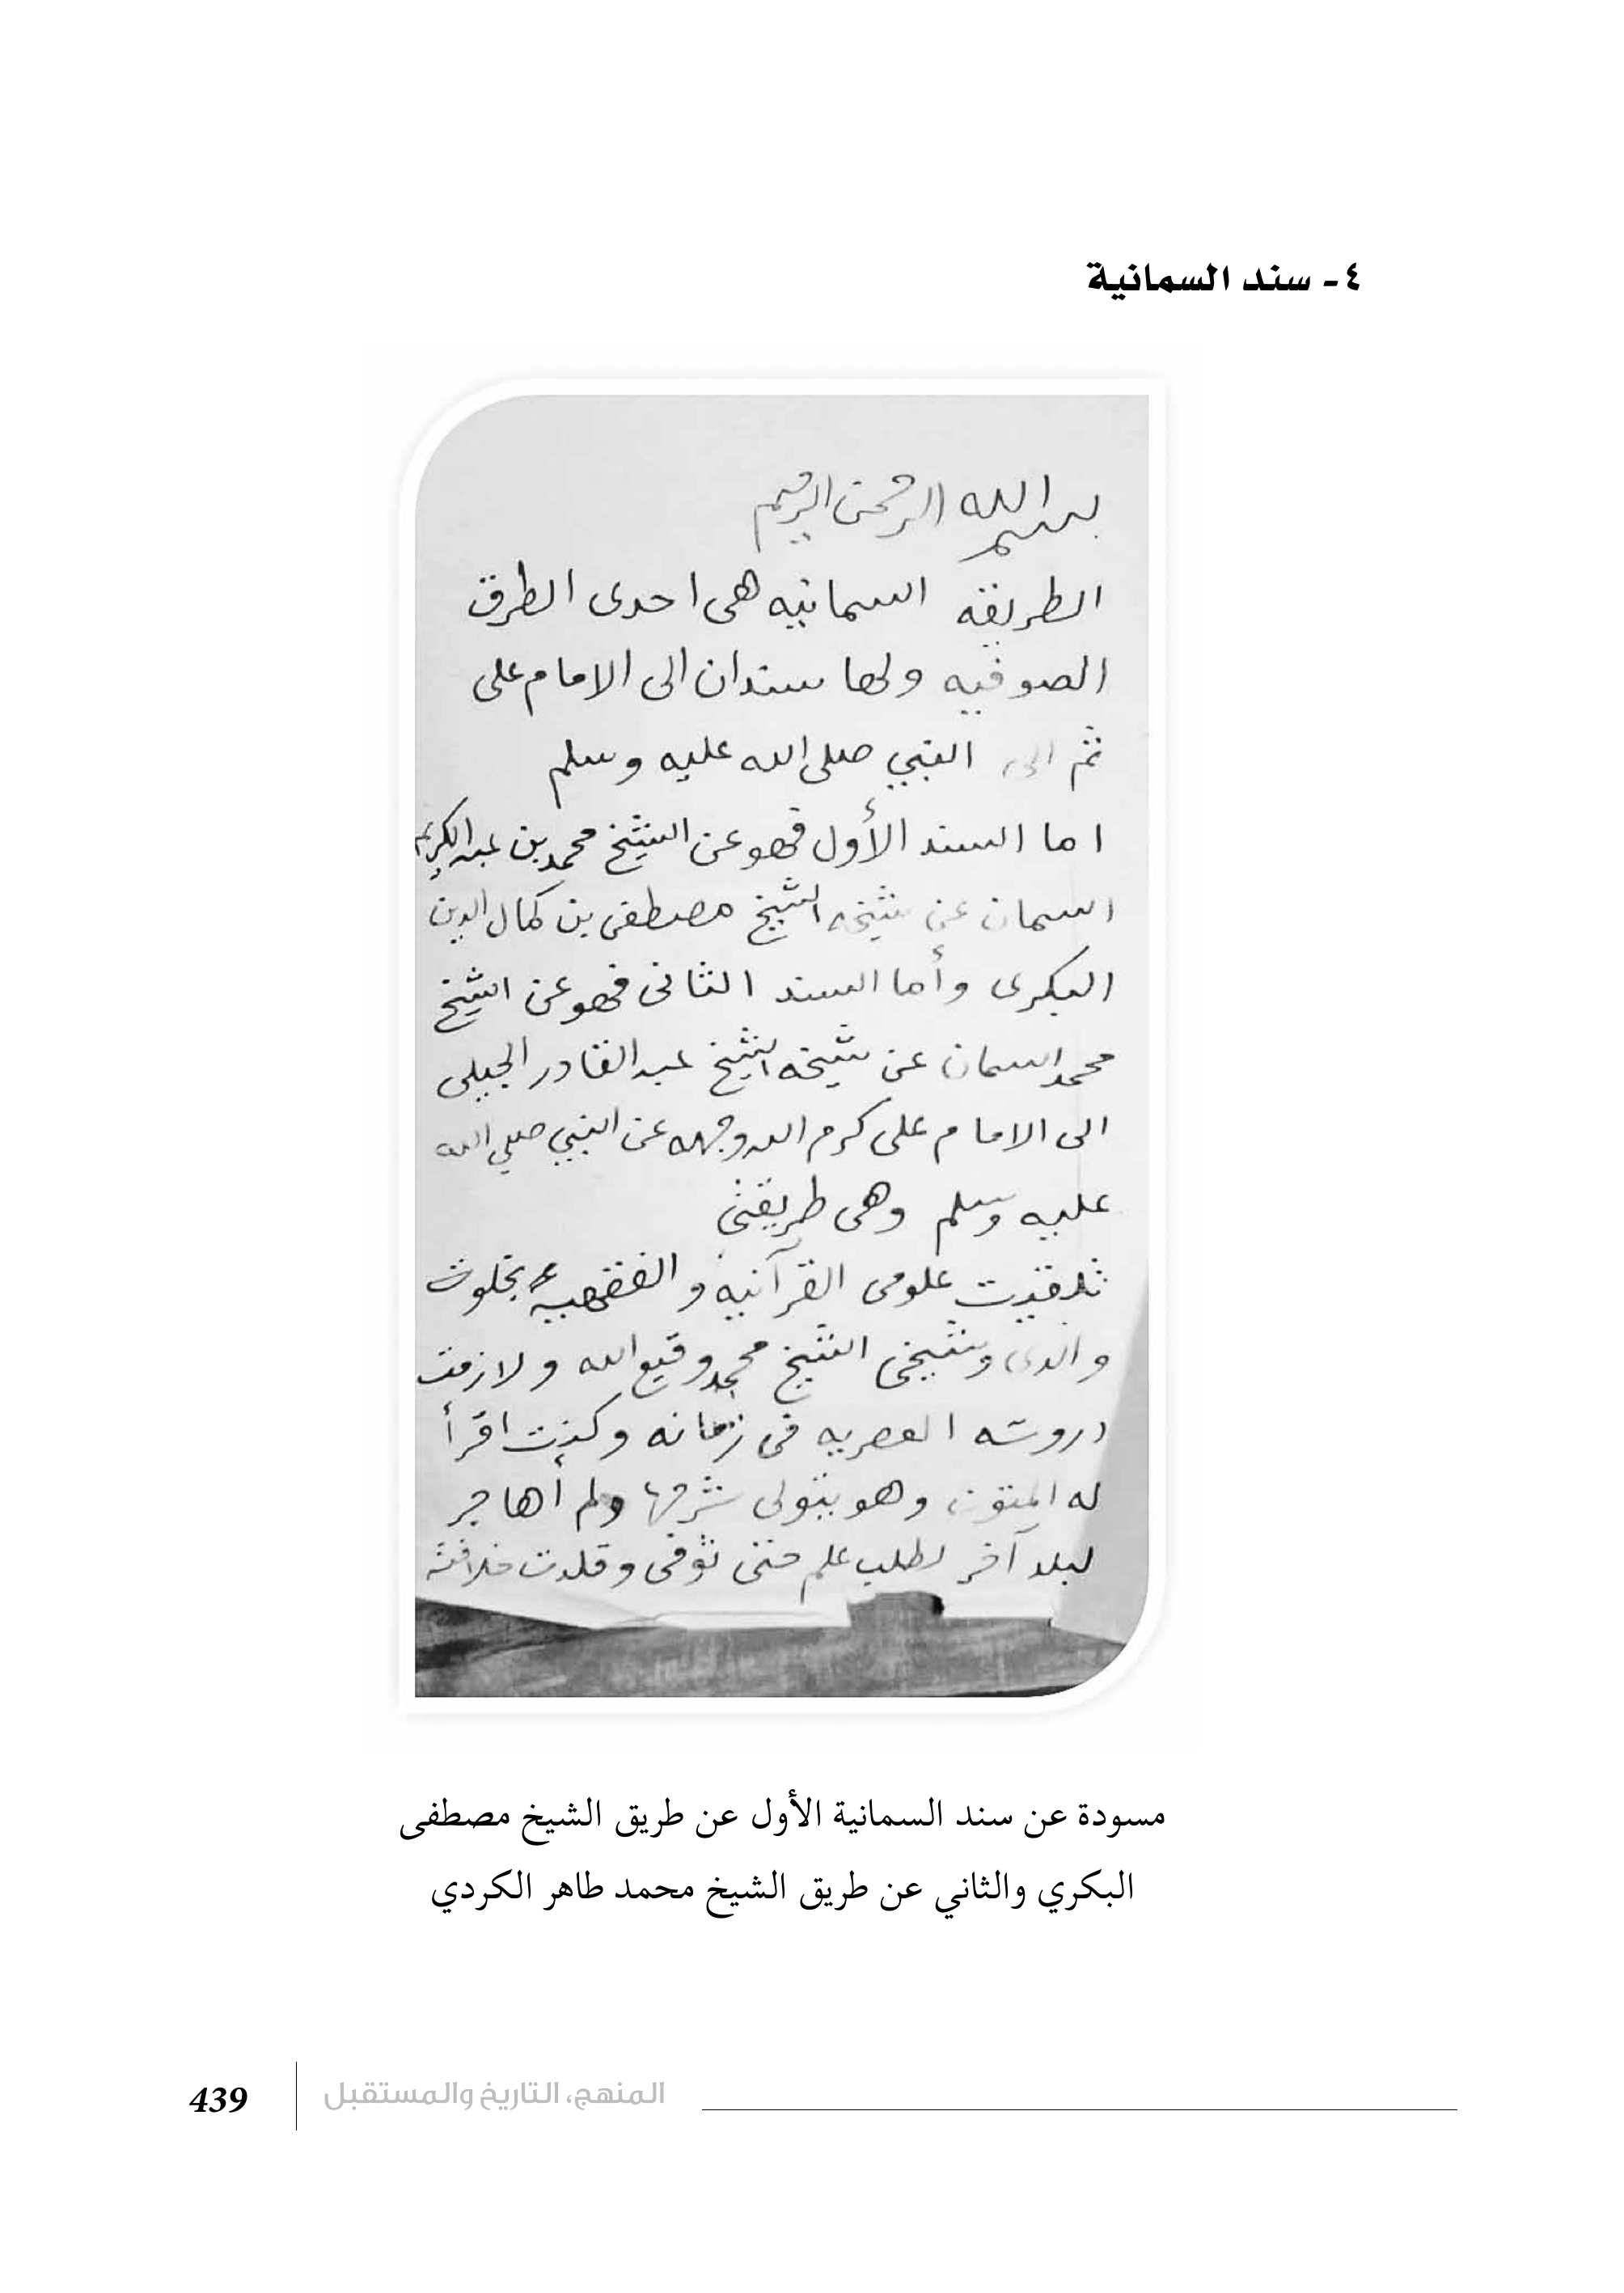 ٤- سند السمانية
بسم الله الرحمن الرحيم
الطريقه السمانيه هى احدى الطرق
الصوفيه ولها سندان الى الامام على
ثم الى النبي صلى الله عليه وسلم
اما السند الأول فهو عن الشيخ محمد بن عبد الكريم
السمان عن شيخه الشيخ مصطفى بن كمال الدين
البكرى وأما السند الثانى فهو عن الشيخ
محمد السمان عن شيخه الشيخ عبد القادر الجيلى
الى الامام على كرم الله وجهه عن النبي صلي الله
عليه وسلم وهى طريقتى
تلقيت علومى القرآنيه و الفقهيه بخلوت
والدى وشيخى الشيخ محمد وقيع الله ولازمت
دروسه العصريه فى زمانه وكنت اقرأ
له المتون وهو يتولى شرحها ولم أهاجر
لبلد آخر لطلب علم حتى توفى وقلدت خلافته
مسودة عن سند السمانية الأول عن طريق الشيخ مصطفى
البكري والثاني عن طريق الشيخ محمد طاهر الكردي
المنهج، التاريخ والمستقبل
439